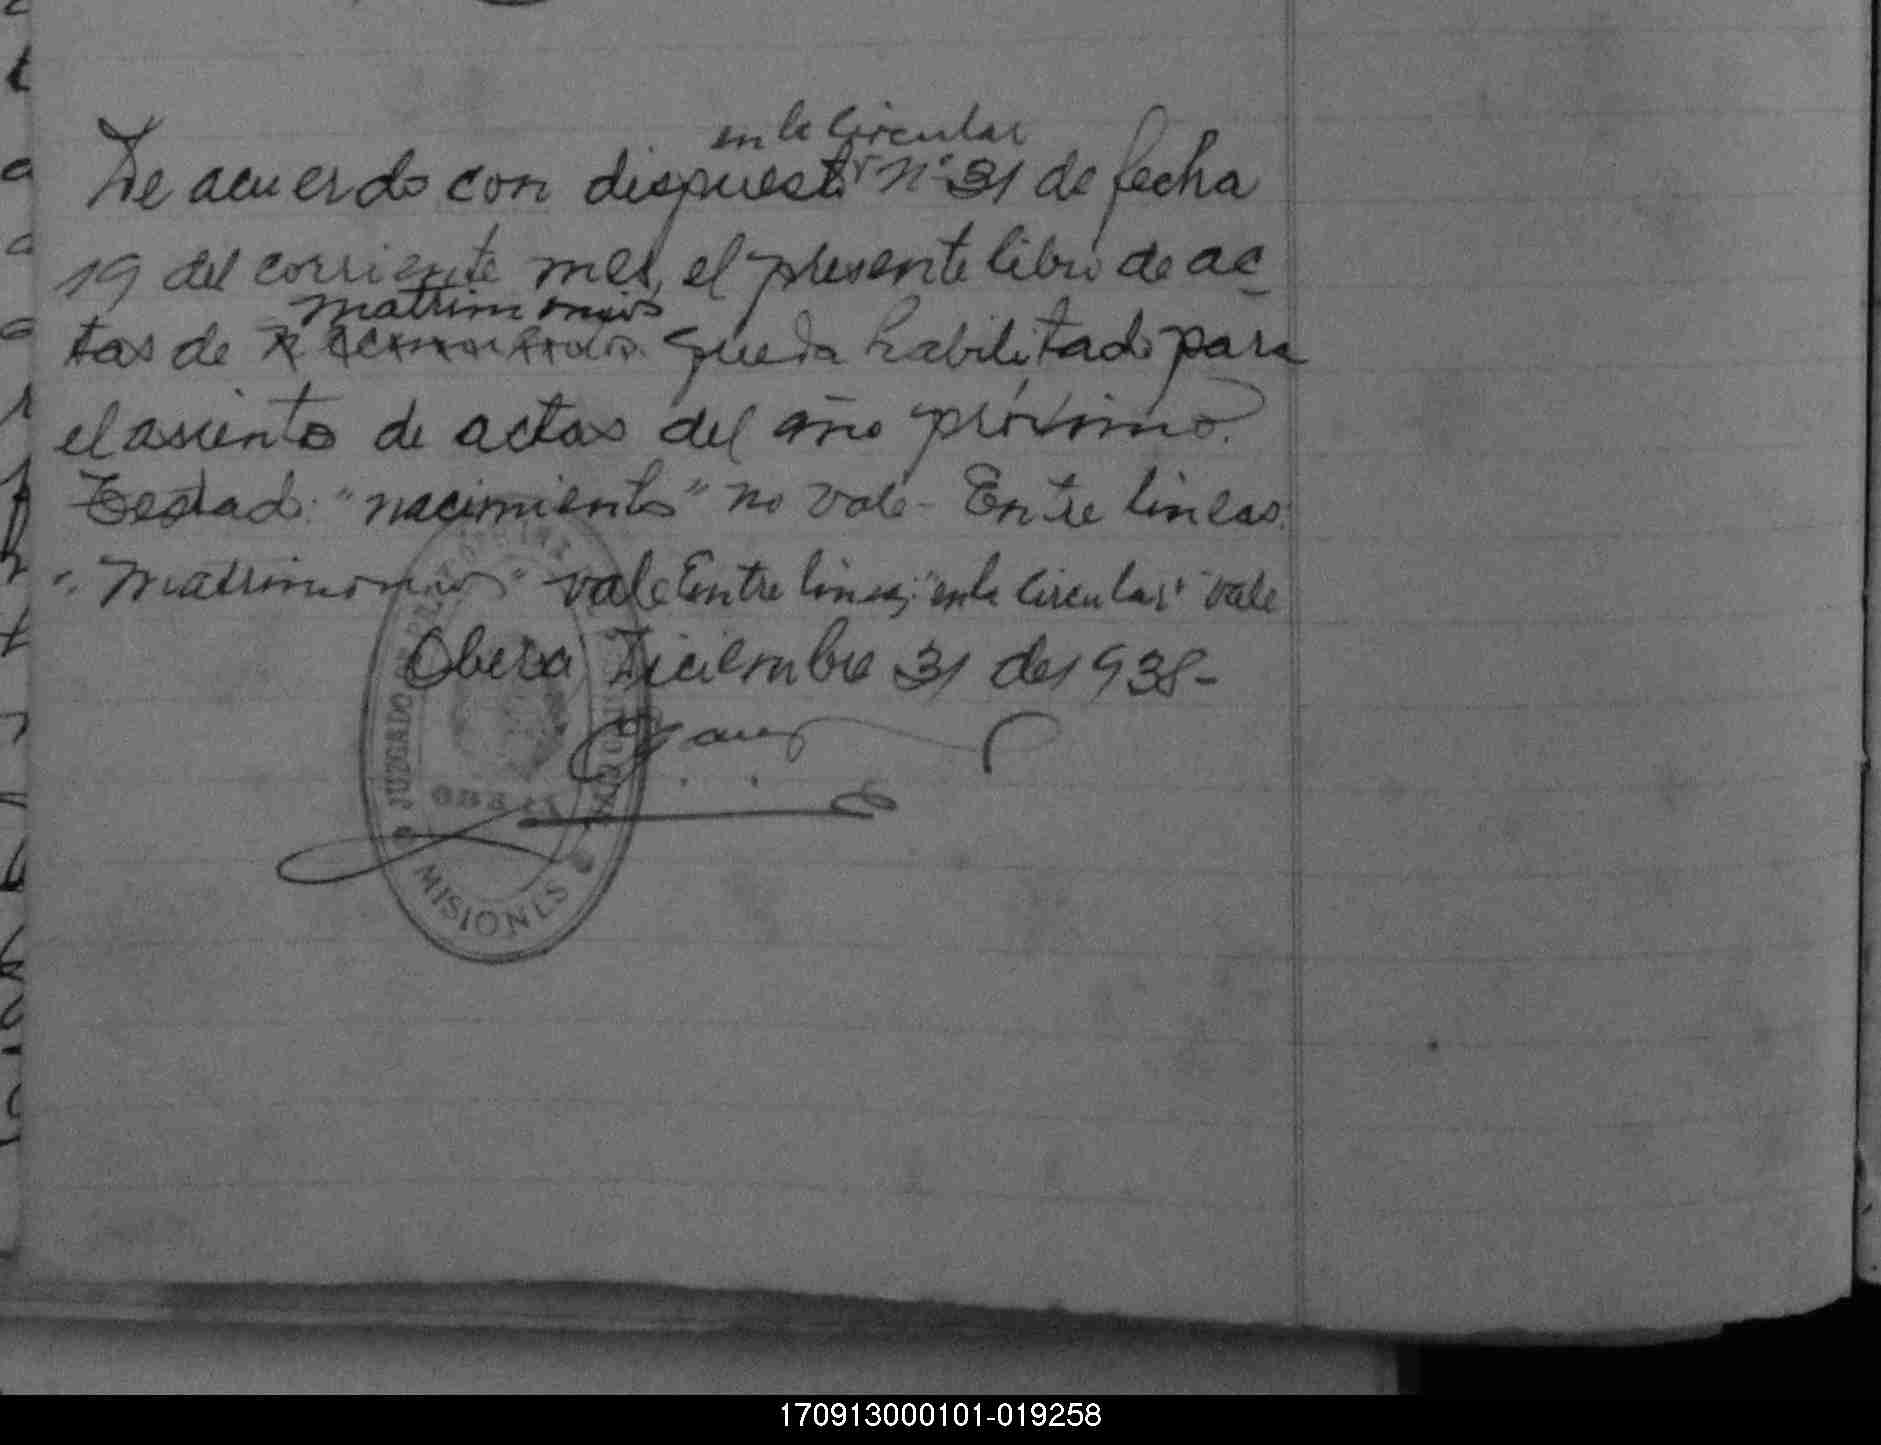 en la Circular
De acuerdo con dispuesto Nº 31 de fecha
19 del corriente mes, el presente libro de ac
matrimonios
tas de nacimientos queda habilitado para
el asiento de actas del año próximo.
Testado: "nacimiento" no vale - Entre lineas:
"Matrimonio" vale Entre lineas: "en la Circular" vale
Obera Diciembre 31 de 1938-
JUZGADO DE PAZ
OBERA
MISIONES
170913000101-019258